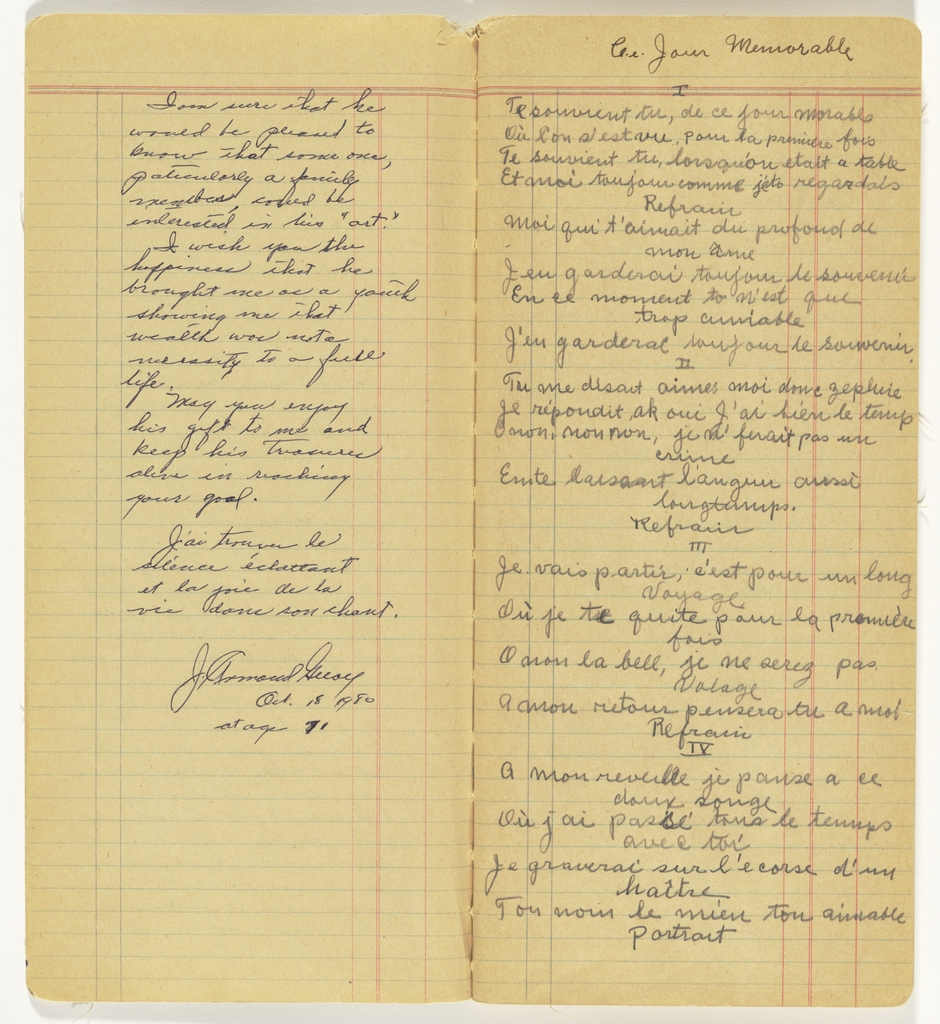 I am sure that he
would be pleased to
know that some one,
paticularly a family
member, could be
interested in his "art."
I wish you the
happiness that he
brought me as a youth
showing me that
wealth was not a
necessity to a full
life.
May you enjoy
his gift to me and
keep his treasures
alive in reaching
your goal.
J'ai trouver le
silence éclattant
et la joie de la
vie dans son chant.
J. Armand
Oct. 18 1980
at age 71
Ce Jour Memorable
I
Te souvient tu, de ce jour morable
Où l'on s'est vue, pour la première fois
Te souvient tu, lorsqu'on etait a table
Et moi toujour comme je te regardais
Refrain
Moi qui t'aimait du profond de
mon âme
J'en garderai toujour le souvenir
En ce moment tu n'est que
trop aimable
J'en garderai toujour le souvenir
II
Tu me disait aimes moi donc zephir
Je répondit, ah oui J'ai bien le temp
O non, non non, je n' ferait pas un
crime
En te laissant languir aussi
longtemps.
Refrain
III
Je vais partir, c'est pour un long
Voyage
Où je te quite pour la première
fois
O non la bell, je ne serez pas
Volage
A mon retour pensera tu a moi
Refrain
IV
A mon reveille je panse a ce
doux songe
Où j'ai passé tous le temps
avec toi
Je graverai sur l'ecorse d'un
haître
Ton nom le mien ton aimable
portrait